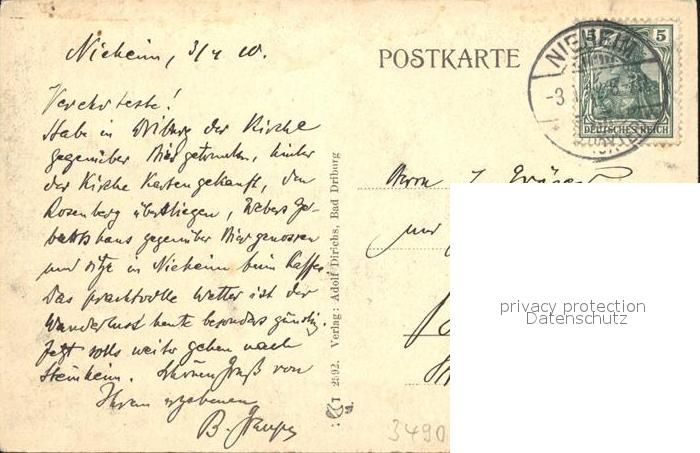 Nieheim, 3/4 10.
Verehrteste!
Habe in Driburg der Kirche
gegenüber Bier getrunken, hinter
der Kirche Karten gekauft, den
Rosenberg überstiegen, Webers Ge-
burtshaus gegenüber Bier genossen
und sitze in Nieheim beim Kaffee.
Das prachtvolle Wetter ist der
Wanderlust heute besonders günstig.
Jetzt solls weiter gehen nach
Steinheim. Schönen Gruß von
Ihrem ergebenen
B.
POSTKARTE
NIEHEIM
-3
5
DEUTSCHES REICH
Herrn
und
T 2592. Verlag: Adolf Dirichs, Bad Driburg
3490
privacy protection
Datenschutz